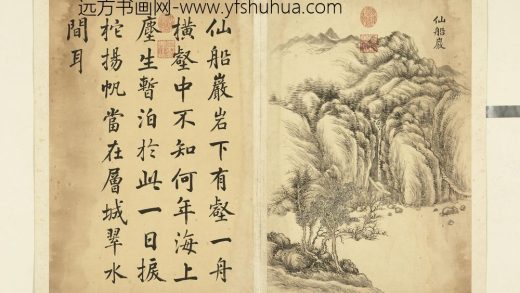 远方书画网-www.yfshuhua.com
仙船巖
仙船巖岩下有壑一舟
橫壑中不知何年海上
塵生暫泊於此一日捩
柁揚帆當在層城翠水
間耳